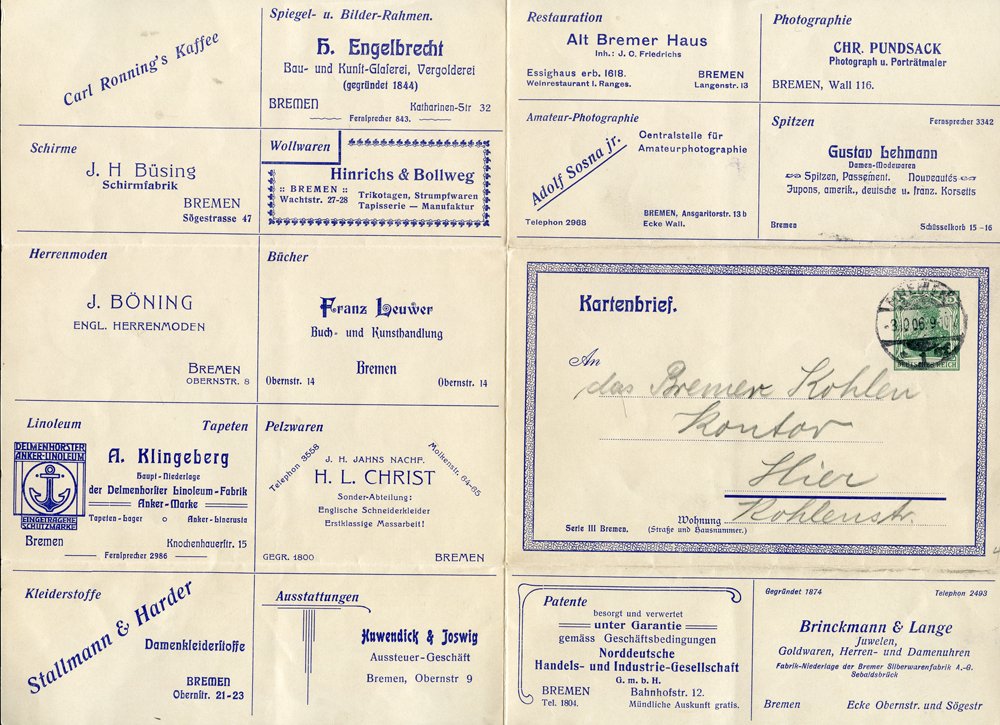 Carl Ronning's Kaffee
Spiegel- u. Bilder-Rahmen.
H. Engelbrecht
Bau- und Kunst-Glaserei, Vergolderei
(gegründet 1844)
BREMEN Katharinen-Str 32
Fernsprecher 843.
Schirme
J. H Büsing
Schirmfabrik
BREMEN
Sögestrasse 47
Wollwaren
Hinrichs & Bollweg
:: BREMEN ::
Wachtstr. 27-28
Trikotagen, Strumpfwaren
Tapisserie — Manufaktur
Herrenmoden
J. BÖNING
ENGL. HERRENMODEN
BREMEN
OBERNSTR. 8
Bücher
Franz Leuwer
Buch- und Kunsthandlung
Bremen
Obernstr. 14 Obernstr. 14
Linoleum Tapeten
DELMENHORSTER
ANKER-LINOLEUM
EINGETRAGENE
SCHUTZMARKE
A. Klingeberg
Haupt-Niederlage
der Delmenhorster Linoleum-Fabrik
Anker-Marke
Tapeten-Lager o Anker-Lincrusta
Bremen Knochenhauerstr. 15
Fernsprecher 2986
Pelzwaren
Telephon 3558
Molkenstr. 64-65
J. H. JAHNS NACHF.
H. L. CHRIST
Sonder-Abteilung:
Englische Schneiderkleider
Erstklassige Massarbeit!
GEGR. 1800 BREMEN
Kleiderstoffe
Stallmann & Harder
Damenkleiderstoffe
BREMEN
Obernstr. 21-23
Ausstattungen
Huwendick & Joswig
Aussteuer-Geschäft
Bremen, Obernstr 9
Restauration
Alt Bremer Haus
Inh.: J. C. Friedrichs
Essighaus erb. 1618. BREMEN
Weinrestaurant I. Ranges. Langenstr. 13
Photographie
CHR. PUNDSACK
Photograph u. Porträtmaler
BREMEN, Wall 116.
Amateur-Photographie
Adolf Sosna jr.
Centralstelle für
Amateurphotographie
BREMEN, Ansgaritorstr. 13 b
Telephon 2968 Ecke Wall.
Spitzen Fernsprecher 3342
Gustav Lehmann
Damen-Modewaren
Spitzen, Passement. Nouveautés
Jupons, amerik., deutsche u. franz. Korsetts
Bremen Schüsselkorb 15-16
Kartenbrief.
BREMEN
-3.10.06.9-
1
DEUTSCHES REICH
An
das Bremer Kohlen
Kontor
Hier
Kohlenstr.
Wohnung
(Straße und Hausnummer.)
Serie III Bremen.
Patente
besorgt und verwertet
unter Garantie
gemäss Geschäftsbedingungen
Norddeutsche
Handels- und Industrie-Gesellschaft
G. m. b. H.
BREMEN Bahnhofstr. 12.
Tel. 1804. Mündliche Auskunft gratis.
Gegründet 1874 Telephon 2493
Brinckmann & Lange
Juwelen,
Goldwaren, Herren- und Damenuhren
Fabrik-Niederlage der Bremer Silberwarenfabrik A.-G.
Sebaldsbrück
Bremen Ecke Obernstr. und Sögestr